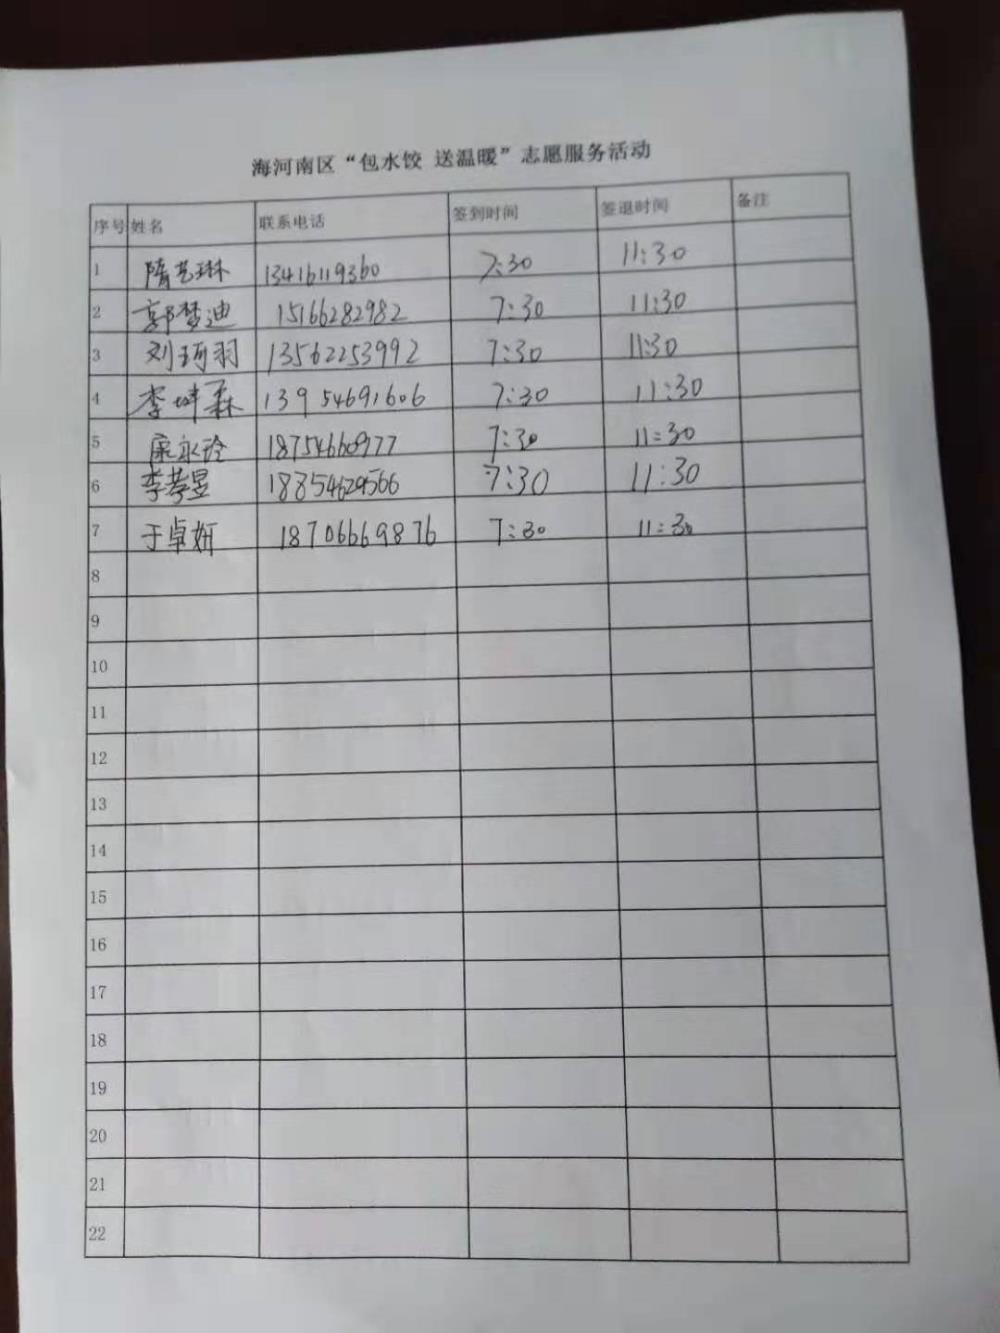 海河南区“包水饺 送温暖”志愿服务活动
序号 姓名 联系电话 签到时间 签退时间 备注
1 隋艺琳 13416119360 7:30 11:30
2 郭梦迪 15166282982 7:30 11:30
3 刘珂羽 13562253992 7:30 11:30
4 李坤霖 13954691606 7:30 11:30
5 康永玲 18754660977 7:30 11:30
6 李孝昱 18854629566 7:30 11:30
7 于卓妍 18706669876 7:30 11:30
8
9
10
11
12
13
14
15
16
17
18
19
20
21
22